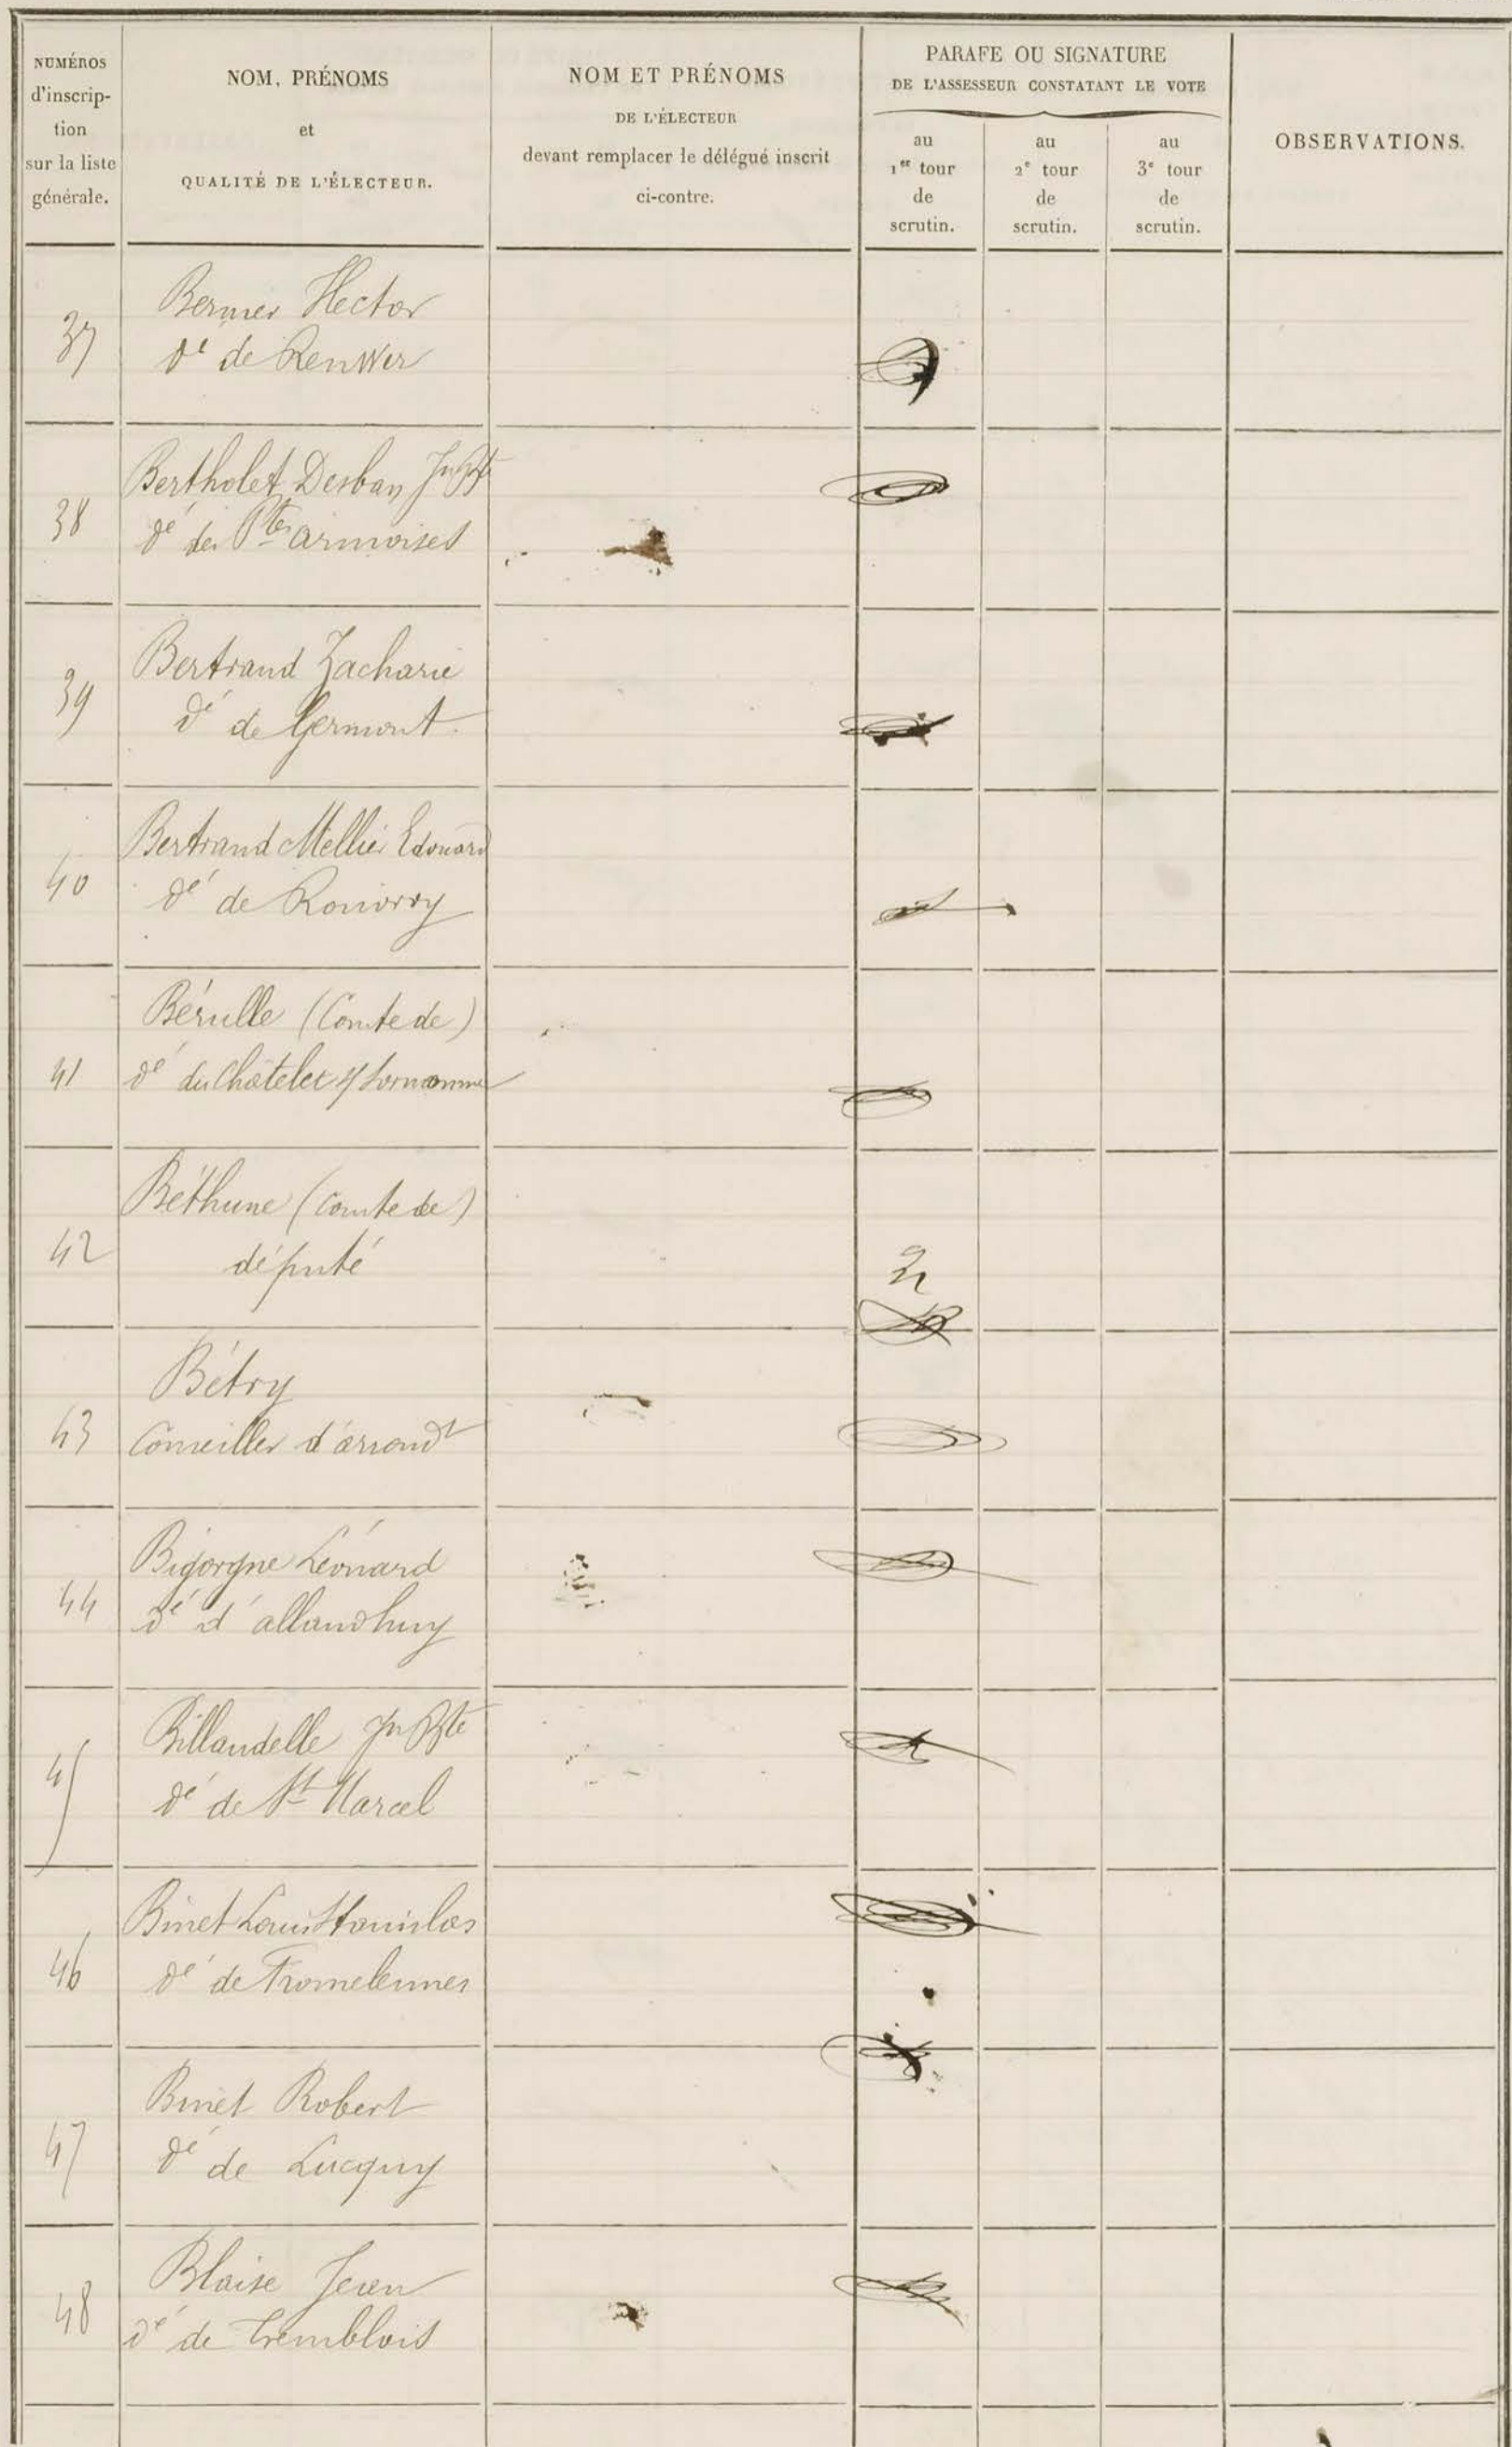 NUMÉROS
d'inscrip-
tion
sur la liste
générale.
NOM, PRÉNOMS
et
QUALITÉ DE L'ÉLECTEUR.
NOM ET PRÉNOMS
DE L'ÉLECTEUR
devant remplacer le délégué inscrit
ci-contre.
PARAFE OU SIGNATURE
DE L'ASSESSEUR CONSTATANT LE VOTE
au
1er tour
de
scrutin.
au
2e tour
de
scrutin.
au
3e tour
de
scrutin.
OBSERVATIONS.
37
Bermer Hector
dé de Renwez
38
Bertholet Desban Jn Bte
dé des Ptes armoises
39
Bertrand Zacharie
dé de Germont
40
Bertrand Mellier Edouard
dé de
41
Bérulle (Comte de)
dé du Châtelet s/ Sormonne
42
Béthune (Comte de)
député
43
Bétry
Conseiller d'arrondt
44
Bigorgne Léonard
dé d'allandhuy
45
Billaudelle Jn Bte
dé de St Marcel
46
Binet Louis Stanislas
dé de Fromelennes
47
Binet Robert
dé de Lucquy
48
Blaise Jean
dé de Tremblois